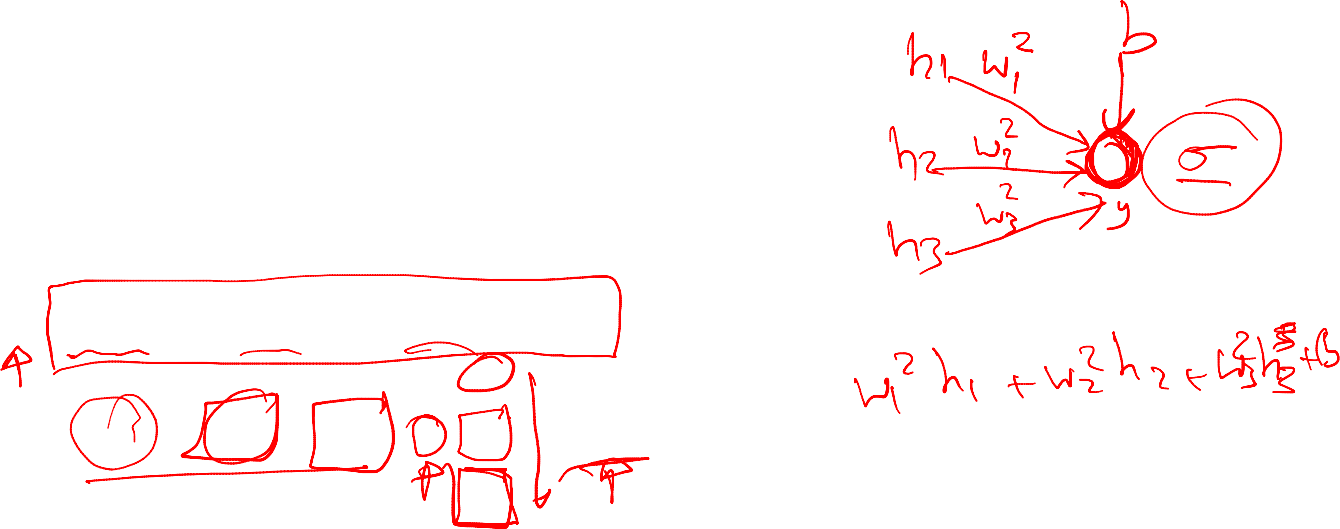 b
h1 w₁²
h2 w₂² σ
h3 w₃² y
w₁² h₁ + w₂² h₂ + w₃² h₃ + b